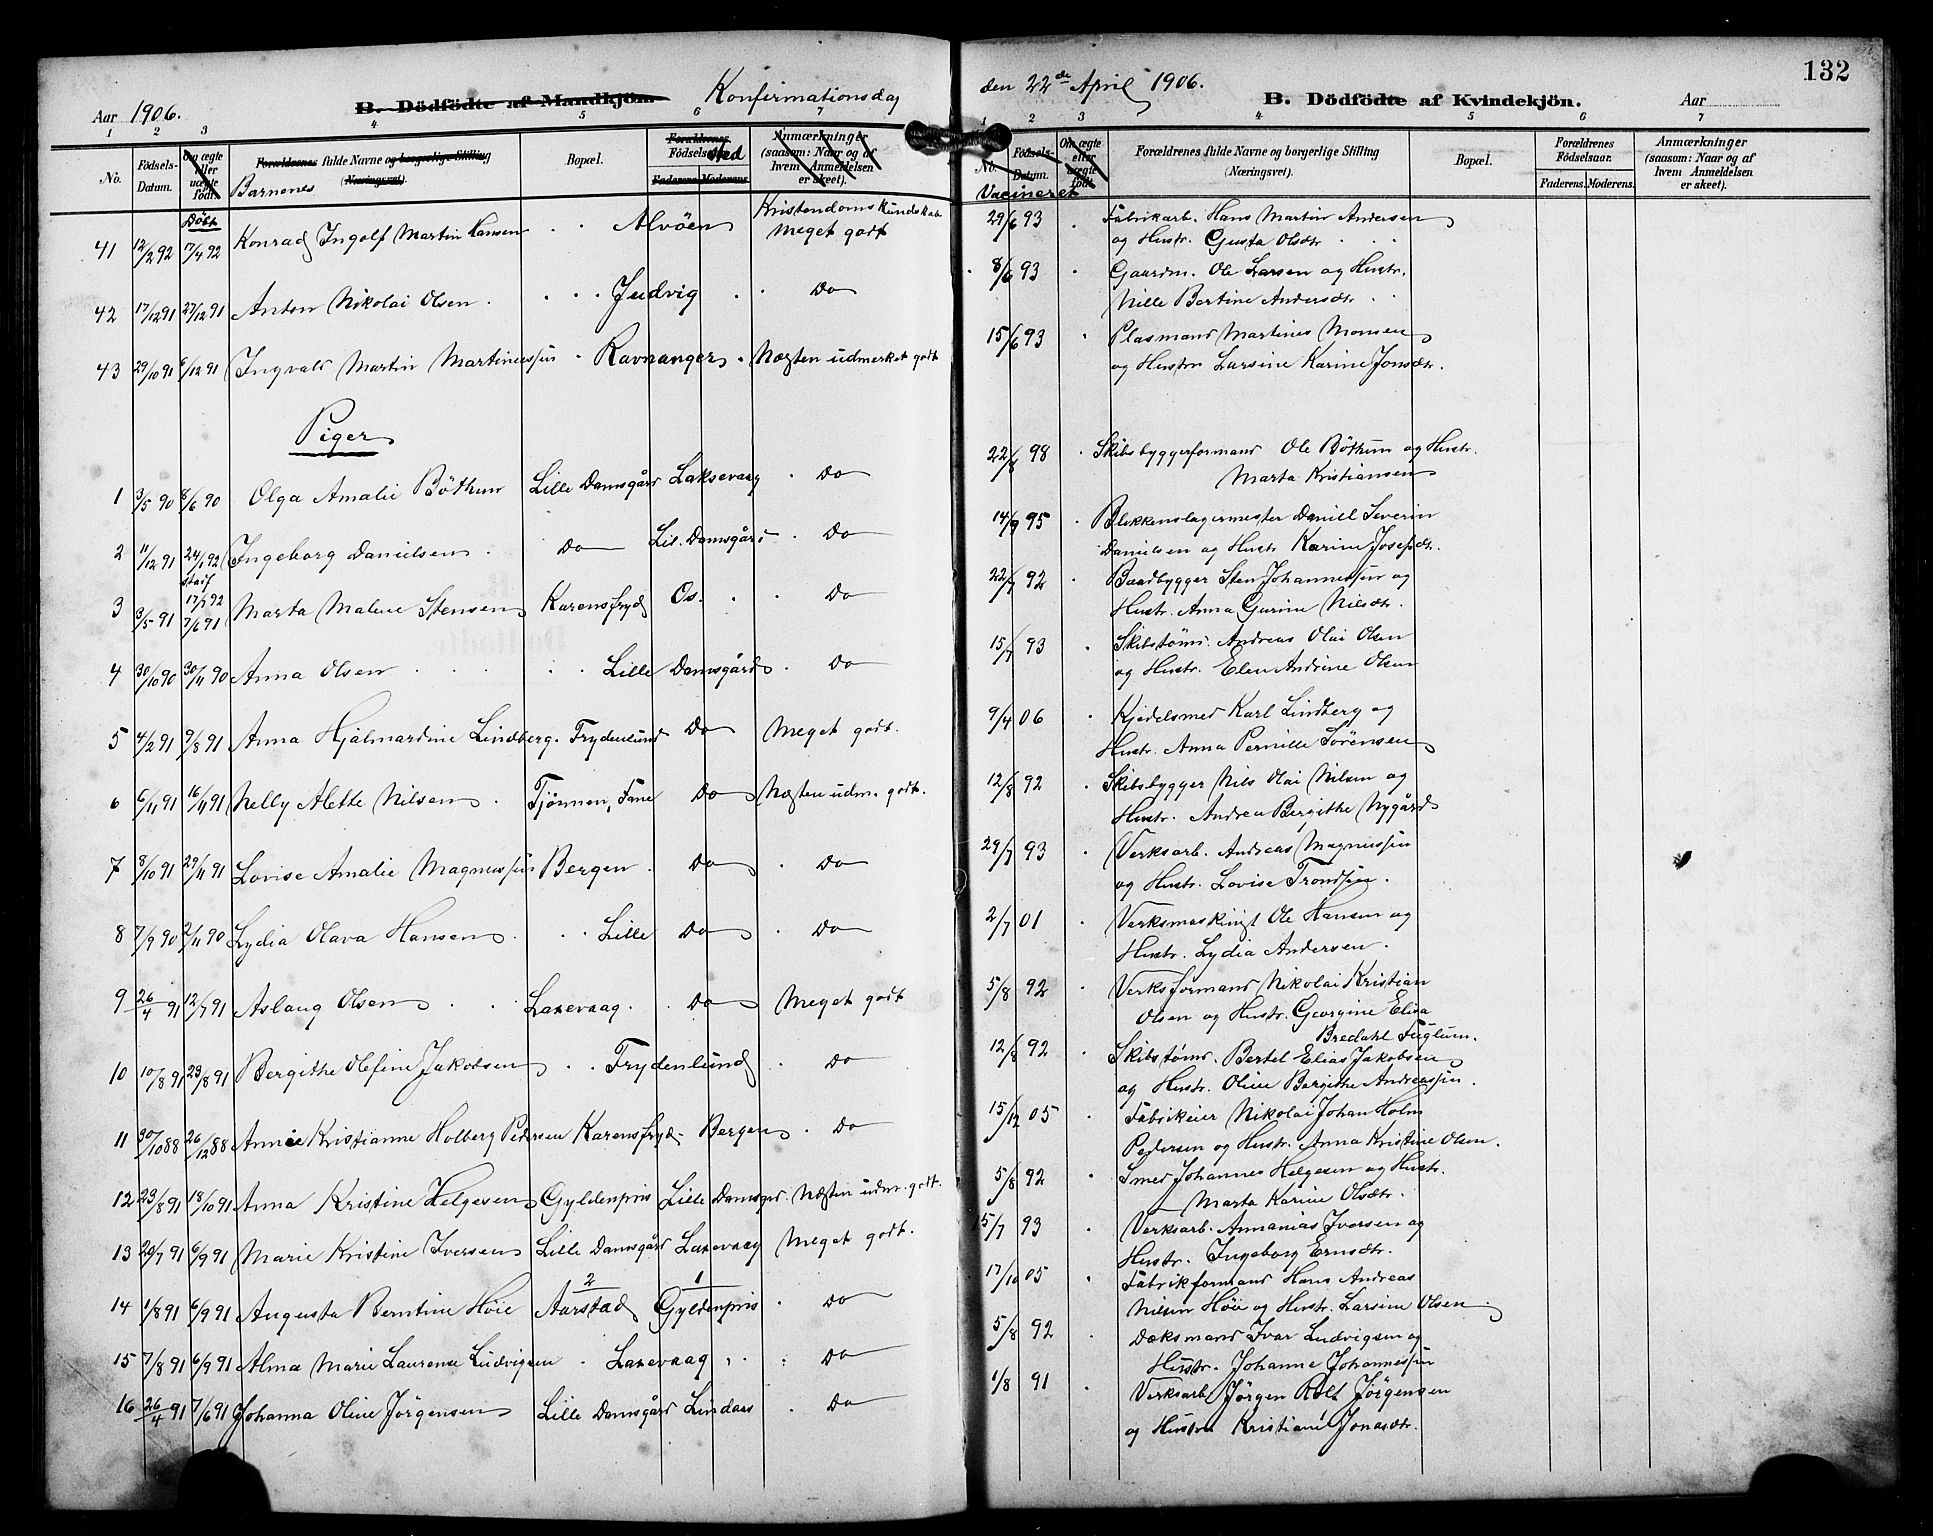 Aar 1906. B. Dödfödte af Mandkjön. Konfirmationsdag
1 2 3 4 5 6 7
No. Födsels-Datum. Om ægte eller uægte födt. Forældrenes fulde Navne og borgerlige Stilling (Næringsvei). Barnenes Bopæl. Forældrenes Födselsaar. sted Faderens. Moderens. Anmærkninger (saasom: Naar og af hvem Anmeldelsen er skeet).
Döbt Kristendomskundskab
41 12/2 92 17/4 92 Konrad Ingolf Martin Hansen Alvöen Meget godt
42 17/12 91 27/12 91 Anton Nikolai Olsen Do
43 29/10 91 6/12 91 Ingvald Martin Martinussen Ravnanger Næsten udmerket godt
Piger
1 3/5 90 8/6 90 Olga Amalie Böthun Lille Damsgård Laksevaag Do
2 11/12 91 24/1 92 Ingeborg Danielsen Do Lil. Damsgård Do
stadf 17/7 92
3 3/5 91 7/6 91 Marta Malene Stensen Karensfryd Os. Do
4 30/10 90 30/11 90 Anna Olsen Lille Damsgård Do
5 4/2 91 9/8 91 Anna Hjalmardine Lindberg. Frydenlund Do Meget godt.
6 6/11 91 16/11 91 Nelly Alette Nilsen Tjönnen, Fane Do Næsten udm. godt.
7 8/10 91 29/11 91 Lovise Amalie Magnussen Bergen Do Do
8 7/9 90 2/11 90 Lydia Olava Hansen Lille Do Do
9 26/4 91 12/7 91 Aslaug Olsen Laxevaag. Do Meget godt
10 10/8 91 23/8 91 Bergithe Olefine Jakobsen Frydenlund Do
11 30/10 88 26/12 88 Annie Kristianne Holberg Pedersen Karensfryd Bergen Do
12 23/8 91 18/10 91 Anna Kristine Helgesen Gyldenpris Lille Damsgrd. Næsten udm. godt.
13 20/7 91 6/9 91 Marie Kristine Iversen Lille Damsgård Laxevaag Meget godt.
2 1
14 1/8 91 6/9 91 Augusta Berntine Höie Aarstad Gyldenpris Do
15 7/8 91 6/9 91 Alma Marie Laurense Ludvigsen Laxevaag Do
16 26/4 91 7/6 91 Johanna Oline Jörgensen Lille Damsgård Lindaas Do
den 22de April 1906. B. Dödfödte af Kvindekjön. Aar 132
1 2 3 4 5 6 7
No. Födsels-Datum. Om ægte eller uægte födt. Forældrenes fulde Navne og borgerlige Stilling (Næringsvei). Bopæl. Forældrenes Födselsaar. Faderens. Moderens. Anmærkninger (saasom: Naar og af hvem Anmeldelsen er skeet).
Vacineret
29/6 93 Fabrikarb. Hans Martin Andersen
og Hustr. Gusta Olsdtr.
8/6 93 Gaardm. Ole Larsen og Hustr.
Nille Bertine Andersdtr.
15/6 93 Plasmand Martines Monsen
og Hustru Larsine Karine Jonsdtr.
22/8 98 Skibsbyggerformand Ole Böthun og Hustr.
Marta Kristiansen
14/9 95 Blikkenslagermester Daniel Severin
Danielsen og Hustr. Karine Josefsdtr.
22/7 92 Baadbygger Sten Johannessen og
Hustr. Anna Gurine Nilsdtr.
15/7 93 Skibstöm. Andreas Olai Olsen
og Hustr. Elen Andrine Olsen
9/4 06 Kjedelsmed Karl Lindberg og
Hustr. Anna Pernille Sörensen
12/8 92 Skibsbygger Nils Olai Nilsen og
Hustr. Andrea Bergithe Nygård
29/7 93 Verksarb. Andreas Magnussen
og Hustr. Lovise Trondsen.
2/7 01 Verksmaskinist Ole Hansen og
Hustr. Lydia Andersen.
5/8 92 Verksformand Nikolai Kristian
Olsen og Hustr. Georgine Elisa
Bredahl Fuglum.
12/8 92 Skibstöm. Bertel Elias Jakobsen
og Hustr. Oline Bergithe Andreassen.
15/12 05 Fabrikeier Nikolai Johan Holm
Pedersen og Hustr. Anna Kristine Olsen.
5/8 92 Smed Johannes Helgesen og Hustr.
Marta Karine Olsdtr.
15/7 93 Verksarb. Annanias Iversen og
Hustr. Ingeborg Ernsdtr.
17/10 05 Fabrikformand Hans Andreas
Nilsen Höie og Hustr. Larsine Olsen
5/8 92 Dæksmand Ivar Ludvigsen og
Hustr. Johanne Johannessen
1/8 91 Verksarb. Jörgen Jörgensen
og Hustru Kristiane Jonasdtr.